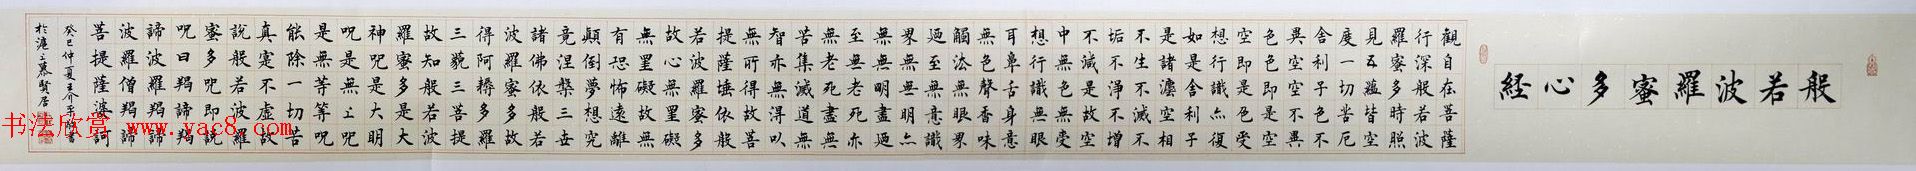 般若波羅蜜多心経
觀自在菩薩
行深般若波
羅蜜多時照
見五蘊皆空
度一切苦厄
舍利子色不
異空空不異
色色即是空
空即是色受
想行識亦復
如是舍利子
是諸灋空相
不生不滅不
垢不淨不增
不減是故空
中無色無受
想行識無眼
耳鼻舌身意
無色聲香味
觸法無眼界
迺至無意識
界無無明亦
無無明盡迺
至無老死亦
無老死盡無
苦集滅道無
智亦無得以
無所得故菩
提薩埵依般
若波羅蜜多
故心無罣礙
無罣礙故無
有恐怖遠離
顛倒夢想究
竟涅槃三世
諸佛依般若
波羅蜜多故
得阿耨多羅
三藐三菩提
故知般若波
羅蜜多是大
神呪是大明
呪是無上呪
是無等等呪
能除一切苦
真實不虛故
說般若波羅
蜜多呪即說
呪曰羯諦羯
諦波羅羯諦
波羅僧羯諦
菩提薩婆訶
癸巳仲夏王介書
於滬上慕賢居
书法欣赏 www.yac8.com